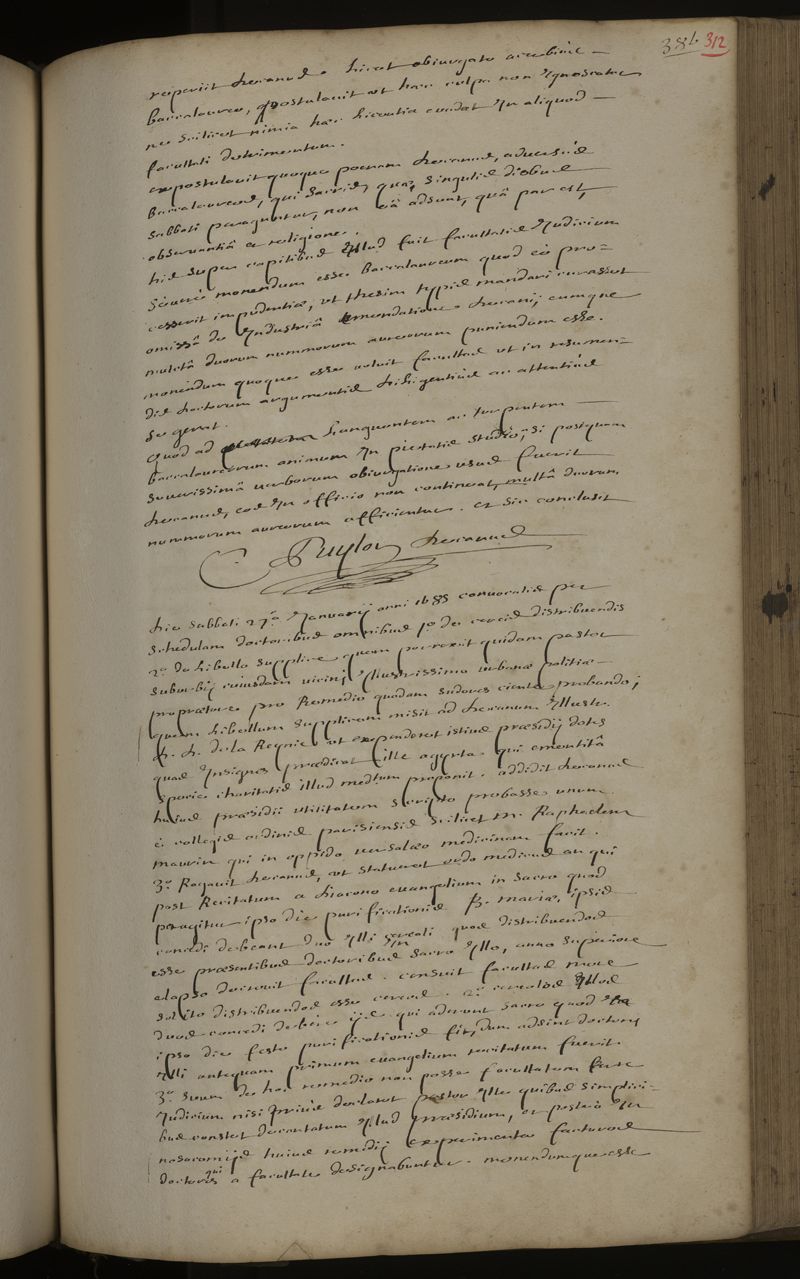 384 312
reperiit decanus. licet obiurgato acerbius
baccalaureo, postulavit ut haec culpa non ignoscatur
ne scilicet nimia haec licentia cedat in aliquod
facultati detrimentum.
expostulavit quoque poenam decanus, adversus
baccalaureos, qui sacris, quae singulis diebus
sabbati peraguntur, non eâ adsunt, quâ par est,
observantiâ et religione.
his super capitibus illud fuit facultatis iudicium
severè monendum esse baccalaureum quod eò pro=
cesserit impudentiae, ut thesim typis mandari curasset
omissâ de industriâ emendatione decani; eumque
mulctâ duorum nummorum aureorum puniendum esse.
monendum quoque esse voluit facultas ut in resumen=
dis doctorum argumentis diligentius ac attentius
se gerat.
Quod ad languentem ac torpentem
baccalaureorum animum in pietatis studio, si postquam
severissimâ verborum obiurgatione usus fuerit
decanus, eos in officio non contineat, multâ duorum
nummorum aureorum afficientur. et sic conclusit
C. Puylon decanus
Die sabbati 27.a Januarij anni 1685 convocatis per
schedulam doctoribus omnibus 1o de cereis distribuendis
2o de libello supplice quem porrexit quidam pastor
suburbij cuiusdam vicini, illustrissimo urbanae politiae
propraetore pro remedio quodam sudores ciente probando;
quem libellum supplicem misit ad decanum illustr.
D. D. de la Reynie ut expenderet istius praesidij dotes
quas insignes praedicat ille agyrta. qui ementitâ
specie charitatis illud medium proponit. addidit decanus
huius praesidii utilitatem scripto probasse unum
è collegis ordinis parisiensis scilicet m. Raphaelem
maurin qui in oppido versaliaeo medicinam facit.
3o Rogavit decanus, ut statueret ordo medicus an qui
post recitatum a diacono evangelium in sacro quod
peragitur ipso die purificationis B. mariae, ipsis
concedi debeant duo illi cerei quos distribuendos
esse praesentibus doctoribus in sacro illo, anno superiore
elapso decrevit facultas. censuit facultas more
solito distribuendos esse cereos. 2o cereolos illos
duos concedi debere ijs qui aderunt sacro quod
ipso die festo purificationis fit, dum adsint doctores
illi antequam primum evangelium recitatum fuerit.
3o suum de hoc remedio non posse facultatem ferre
iudicium nisi prius declaret pastor ille quibus simplici=
bus constet decantatum illud praesidium, et postea in
nosocomijs huius remedij experimenta facturos
doctores qui a facultate designabuntur. monendumque esse